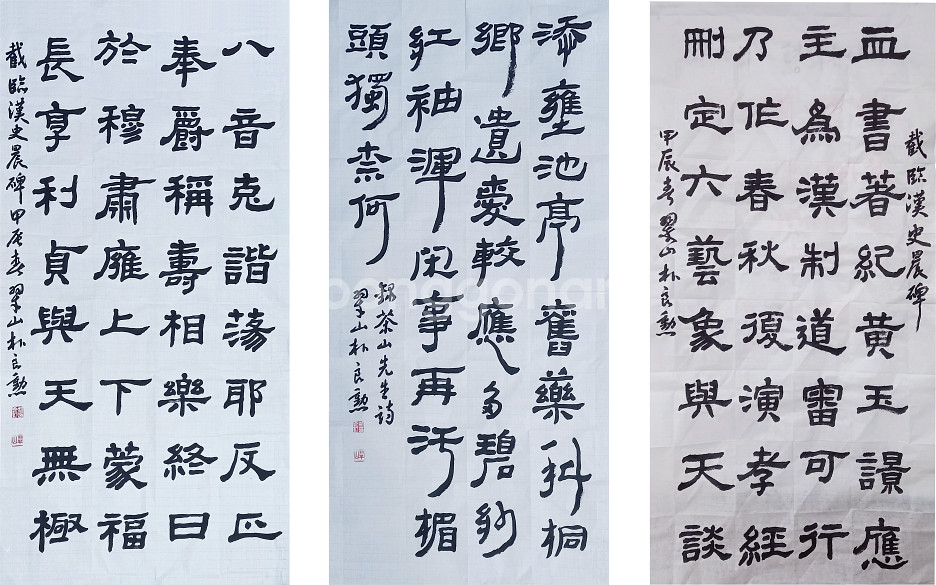 八音克諧蕩耶反正
奉爵稱壽相樂終日
於穆肅雍上下蒙福
長享利貞與天無極
截臨漢史晨碑甲辰春翠山朴良勲
添壅池亭舊藥科桐
鄉遺愛較應多碧紗
紅袖渾閑事再汚楣
頭獨柰何
錄茶山先生詩
翠山朴良勲
截臨漢史晨碑
血書著紀黃玉應
主爲漢制道審可行
乃作春秋復演孝經
刪定六藝象與天談
甲辰春翠山朴良勲